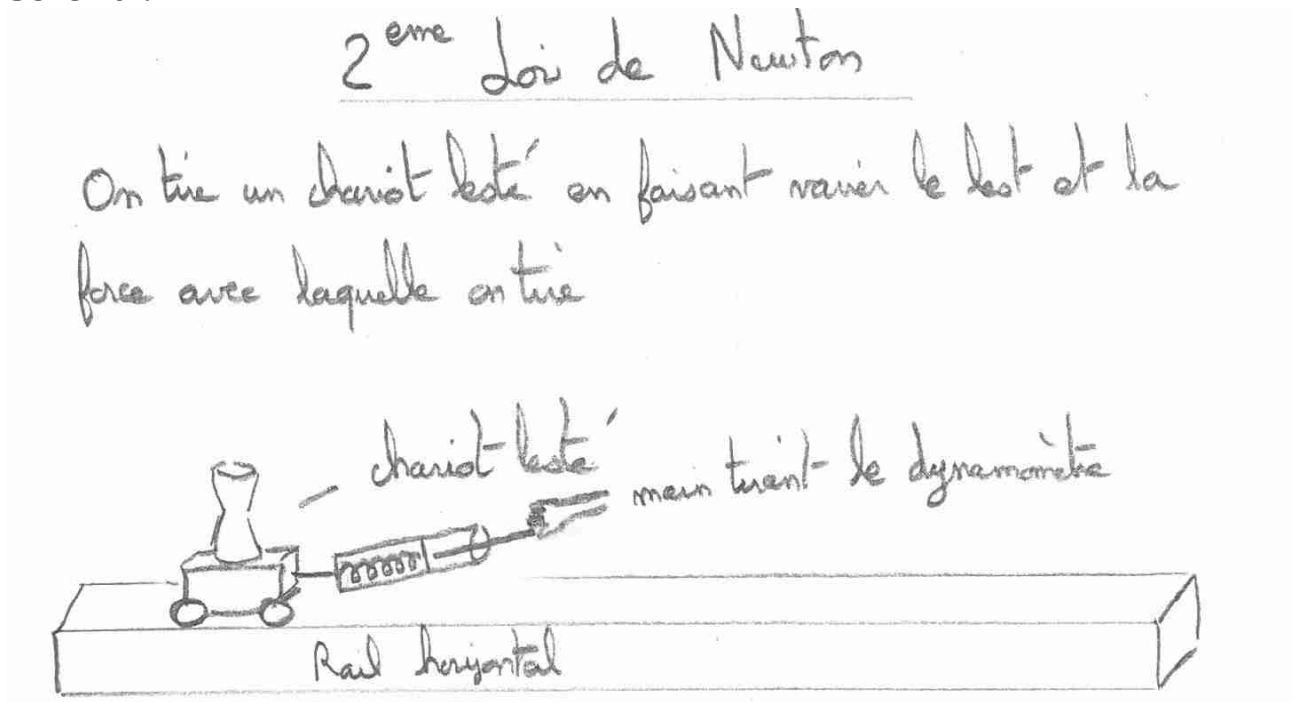 2eme Loi de Newton
On tire un chariot lesté en faisant varier le lest et la
force avec laquelle on tire
chariot lesté
main tirant le dynamomètre
Rail horizontal